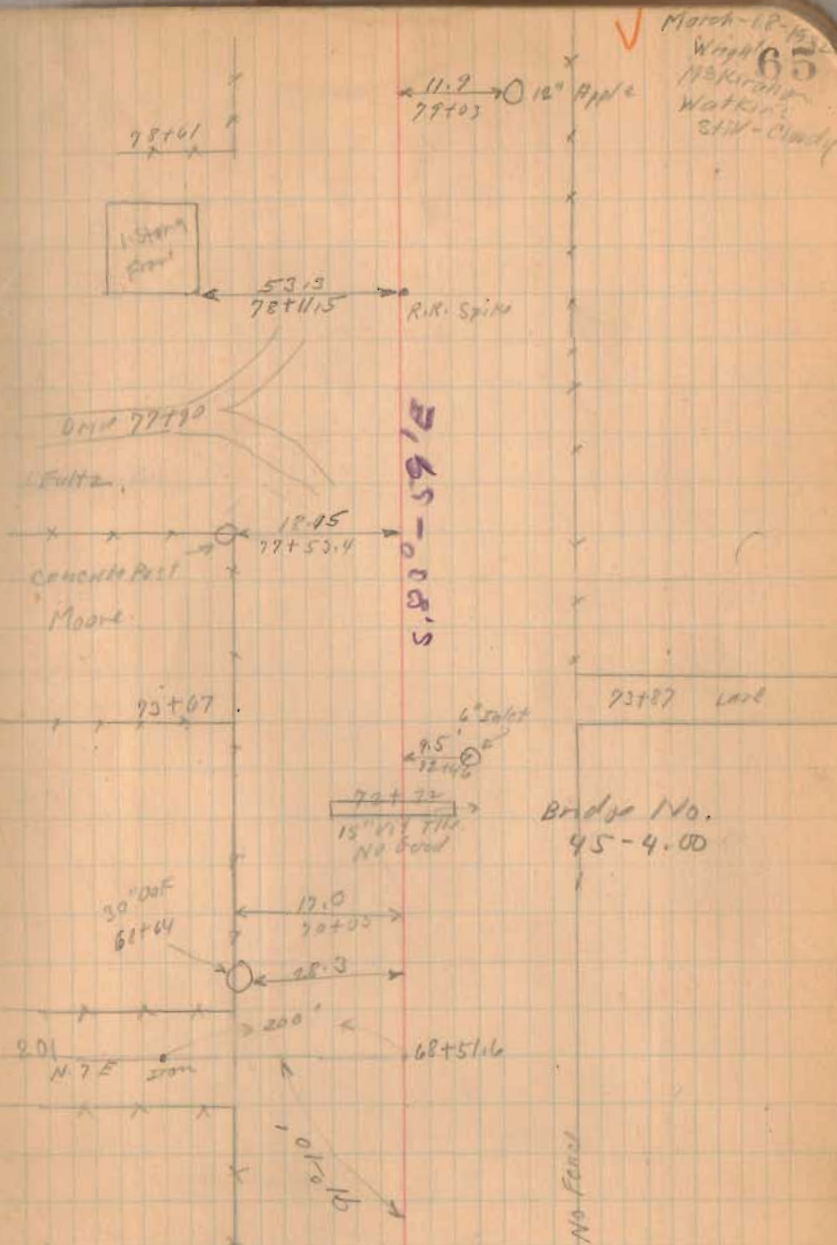 March-18-
65
Wright
Watkins
Still-Cloudy
11.9
79+03
12" Apple
78+61
1-Story
Frame
53.3
78+11.5
R.R. Spike
Drive 77+90
Fultz
18.15
77+53.4
Concrete Post
Moore
73+67
73+87 Lane
6" Inlet
9.5'
72+46
72+22
15" Vit Tile
No Good
Bridge No.
45-4.00
17.0
70+05
30" Oak
68+64
28.3
200'
201
N.7E Iron
68+51.6
No Fence